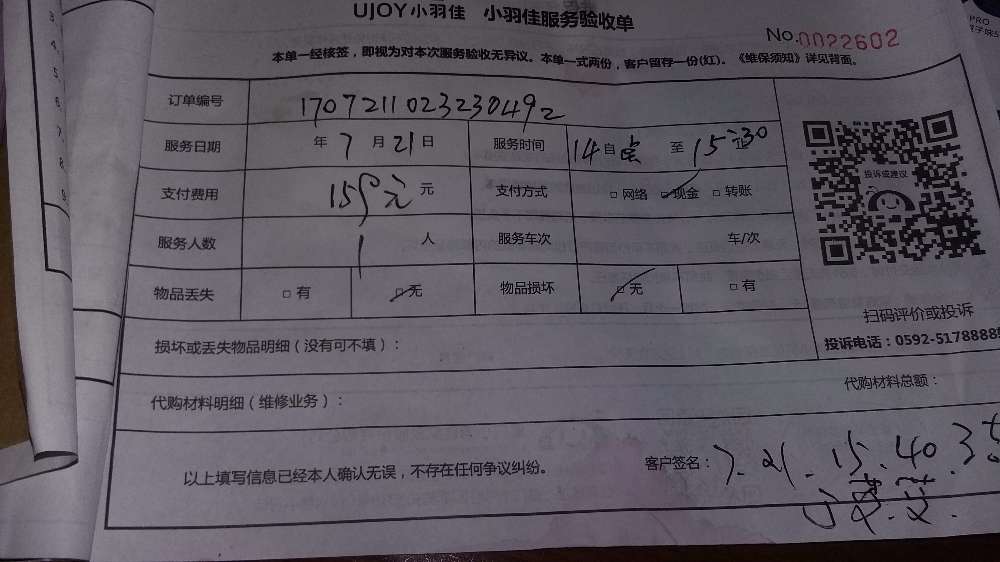 UJOY小羽佳 小羽佳服务验收单
No.0022602
本单一经核签，即视为对本次服务验收无异议。本单一式两份，客户留存一份(红)。《维保须知》详见背面。
订单编号 1707211023230492
服务日期 年 7 月 21 日 服务时间 14 点 至 15:30
支付费用 150元 元 支付方式 □网络 ☑现金 □转账
服务人数 1 人 服务车次 车/次
物品丢失 □有 ☑无 物品损坏 ☑无 □有
投诉或建议
扫码评价或投诉
投诉电话：0592-5178888
损坏或丢失物品明细（没有可不填）：
代购材料明细（维修业务）： 代购材料总额：
以上填写信息已经本人确认无误，不存在任何争议纠纷。 客户签名： 7.21.15.40.
3.
4.
5.
6.
7.
8.
9.
PRO